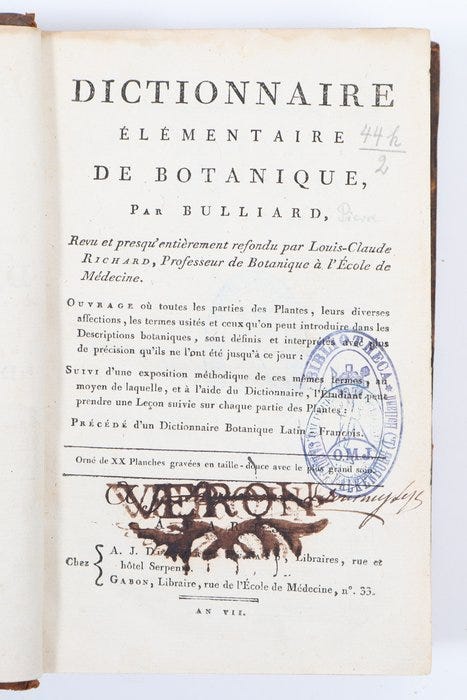 DICTIONNAIRE
ÉLÉMENTAIRE
44 h
2
DE BOTANIQUE,
PAR BULLIARD,
Revu et presqu'entièrement refondu par Louis-Claude
RICHARD, Professeur de Botanique à l'École de
Médecine.
OUVRAGE où toutes les parties des Plantes, leurs diverses
affections, les termes usités et ceux qu'on peut introduire dans les
Descriptions botaniques, sont définis et interprétés avec plus
de précision qu'ils ne l'ont été jusqu'à ce jour :
SUIVI d'une exposition méthodique de ces mêmes termes, au
moyen de laquelle, et à l'aide du Dictionnaire, l'Étudiant peut
prendre une Leçon suivie sur chaque partie des Plantes :
PRÉCÉDÉ d'un Dictionnaire Botanique Latin-François.
BIBLIOTHECA
O.M.J.
Orné de XX Planches gravées en taille-douce avec le plus grand soin.
VÆRON
A PARIS,
Chez
A. J. Libraires, rue et
hôtel Serpente.
GABON, Libraire, rue de l'École de Médecine, n°. 33.
AN VII.